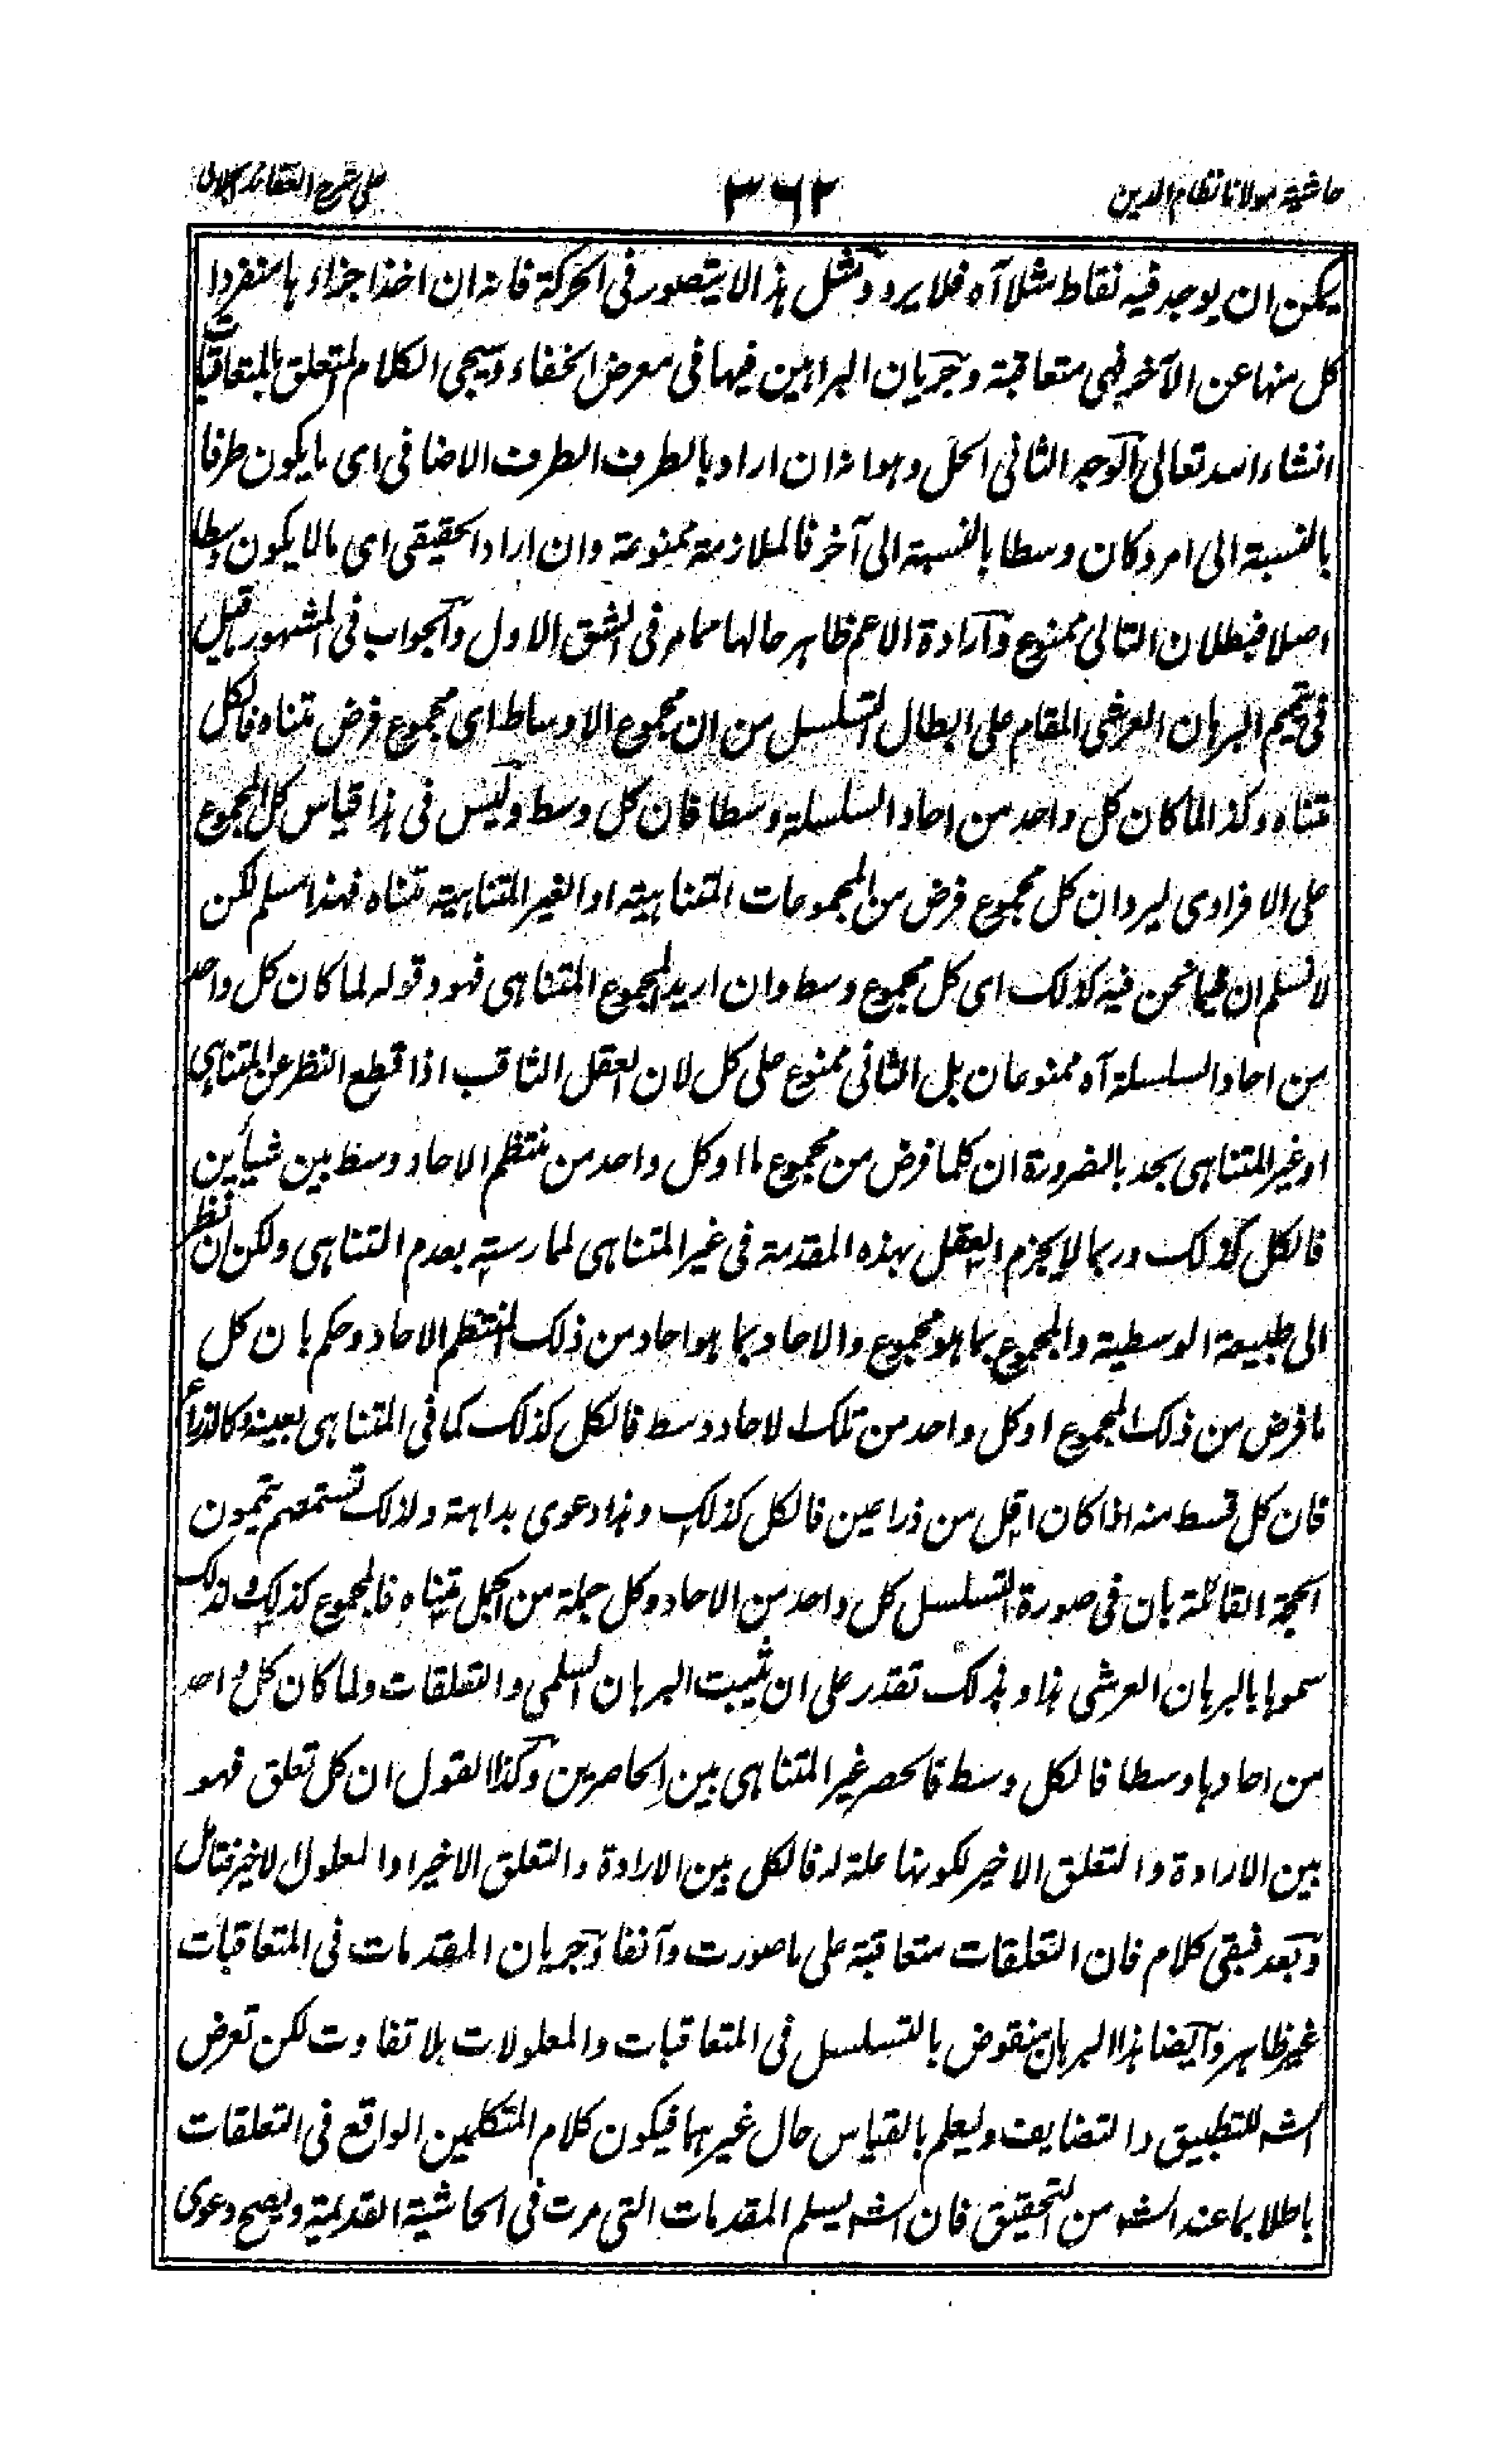 حاشیة مولانا نظام الدین
۳۶۲
علی شرح العقائد الجلالی
یمکن ان یوجد فیه نقاط مثلا آه فلا یرد و مثل هذا لا یتصور فی الحرکة فانه ان اخذ اجزاءها منفردا
کل منها عن الآخر فهی متعاقبة و جریان البراهین فیها فی معرض الخفاء و سیجی الکلام المتعلق بالمتعاقبات
انشاء الله تعالی الوجه الثانی الحل و هو انه ان اراد بالطرف الطرف الاضافی ای ما یکون طرفا
بالنسبة الی امر و کان وسطا بالنسبة الی آخر فالملازمة ممنوعة و ان اراد الحقیقی ای ما لا یکون وسطا
اصلا فبطلان التالی ممنوع و ارادة الاعم ظاهر حالها مما مر فی الشق الاول و الجواب فی المشهور ما قیل
فی تتمیم البرهان العرشی المقام علی ابطال التسلسل من ان مجموع الاوساط ای مجموع فرض متناه فالکل
متناه و کذا لما کان کل واحد من احاد السلسلة وسطا فان کل وسط و لیس فی هذا قیاس کل المجموع
علی الافرادی لیرد ان کل مجموع فرض من المجموعات المتناهیة او الغیر المتناهیة متناه فهذا مسلم لکن
لا نسلم ان فیما نحن فیه کذلک ای کل مجموع وسط و ان ارید المجموع المتناهی فهو و قوله لما کان کل واحد
من احاد السلسلة آه ممنوعان بل الثانی ممنوع علی کل لان العقل الثاقب اذا قطع النظر عن المتناهی
او غیر المتناهی یجد بالضرورة ان کلما فرض من مجموع ما او کل واحد من منتظم الاحاد وسط بین شیأین
فالکل کذلک و ربما لا یجزم العقل بهذه المقدمة فی غیر المتناهی لممارسته بعدم التناهی و لکن ان نظر
الی طبیعة الوسطیة و المجموع بما هو مجموع و الاحاد بما هو احاد من ذلک المنتظم الاحاد و حکم بان کل
ما فرض من ذلک المجموع او کل واحد من تلک الاحاد وسط فالکل کذلک کما فی المتناهی بعینه و کالذراع
فان کل قسط منه اذا کان اقل من ذراعین فالکل کذلک و هذا دعوی بداهة و لذلک تسمعهم یتمون
الحجة القائلة بان فی صورة التسلسل کل واحد من الاحاد و کل جملة من الجمل متناه فالمجموع کذلک و لذلک
سموها بالبرهان العرشی هذا و بذلک تقدر علی ان تثبت البرهان السلمی و التعلقات و لما کان کل واحد
من احادها وسطا فالکل وسط فانحصر غیر المتناهی بین الحاصرین و کذا القول ان کل تعلق فهو
بین الارادة و التعلق الاخیر لکونها علة له فالکل بین الارادة و التعلق الاخیر او المعلول الاخیر فتأمل
و بعد فبقی کلام فان التعلقات متعاقبة علی ما صورت و آنفا و جریان المقدمات فی المتعاقبات
غیر ظاهر و ایضا هذا البرهان منقوض بالتسلسل فی المتعاقبات و المعلولات بلا تفاوت لکن تعرض
الشه للتطبیق و التضایف و لیعلم بالقیاس حال غیرهما فیکون کلام المتکلمین الواقع فی التعلقات
باطلا بما عند الشه من التحقیق فان الشه یسلم المقدمات التی مرت فی الحاشیة القدیمة و یصح دعوی